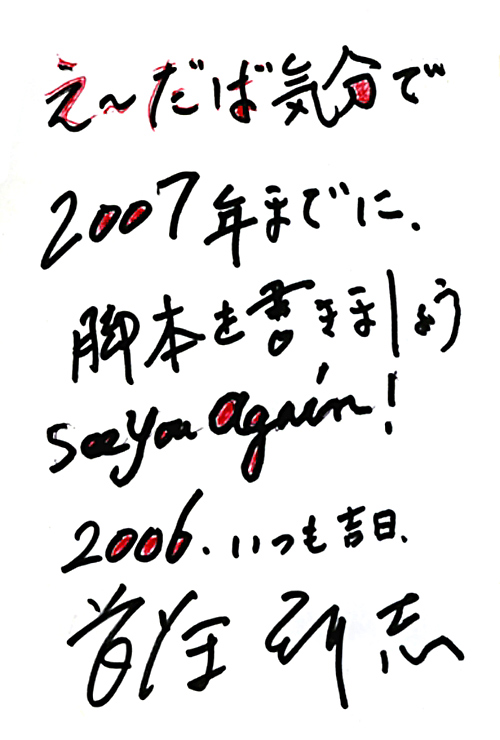 え~だば気分で
2007年までに、
脚本を書きましょう
See you again!
2006.いつも吉日、
志